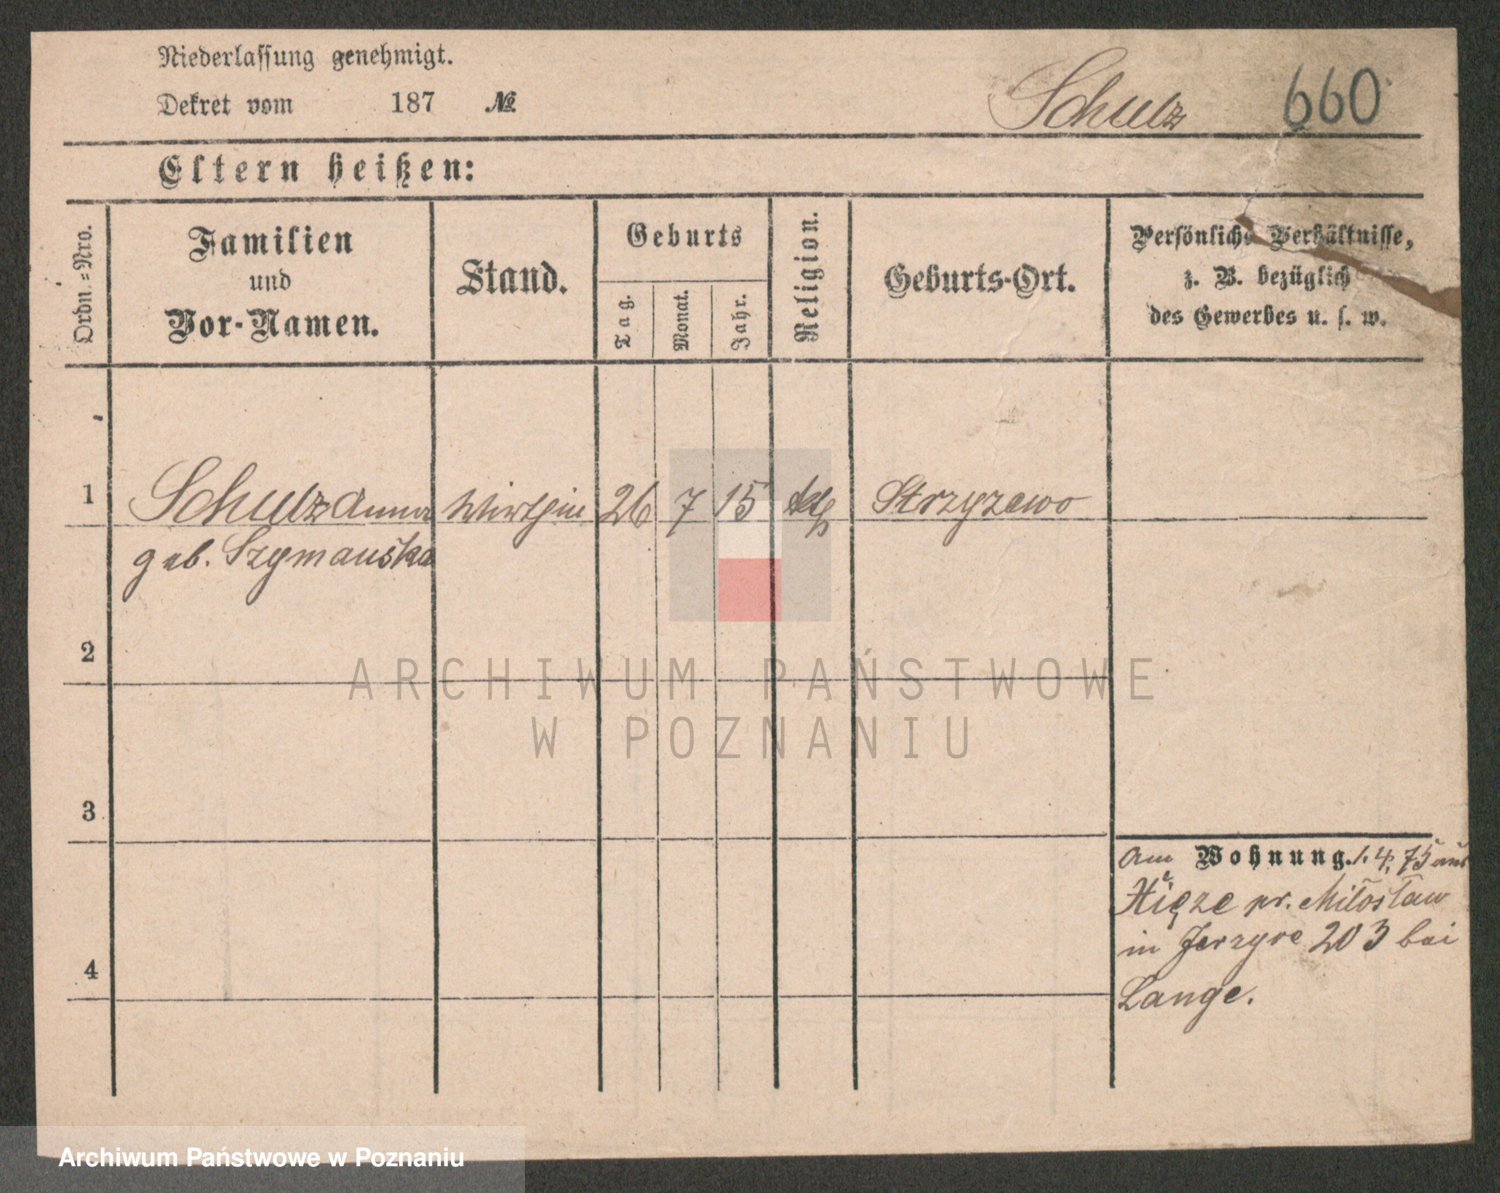 Niederlassung genehmigt.
Dekret vom 187 №
Schulz 660
Eltern heißen:
Ordn.-Nro.
Familien
und
Vor-Namen.
Stand.
Geburts
Tag.
Monat.
Jahr.
Religion.
Geburts-Ort.
Persönliche Verhältnisse,
z. B. bezüglich
des Gewerbes u. s. w.
1 Schulz Anna Wirthin 26 7 15 kth Strzyzewo
geb. Szymańska
2
ARCHIWUM PAŃSTWOWE
W POZNANIU
3
Am Wohnung. 1. 4. 75 aus
pr. Miłosław
in Jerzyce 203 bei
4
Lange.
Archiwum Państwowe w Poznaniu